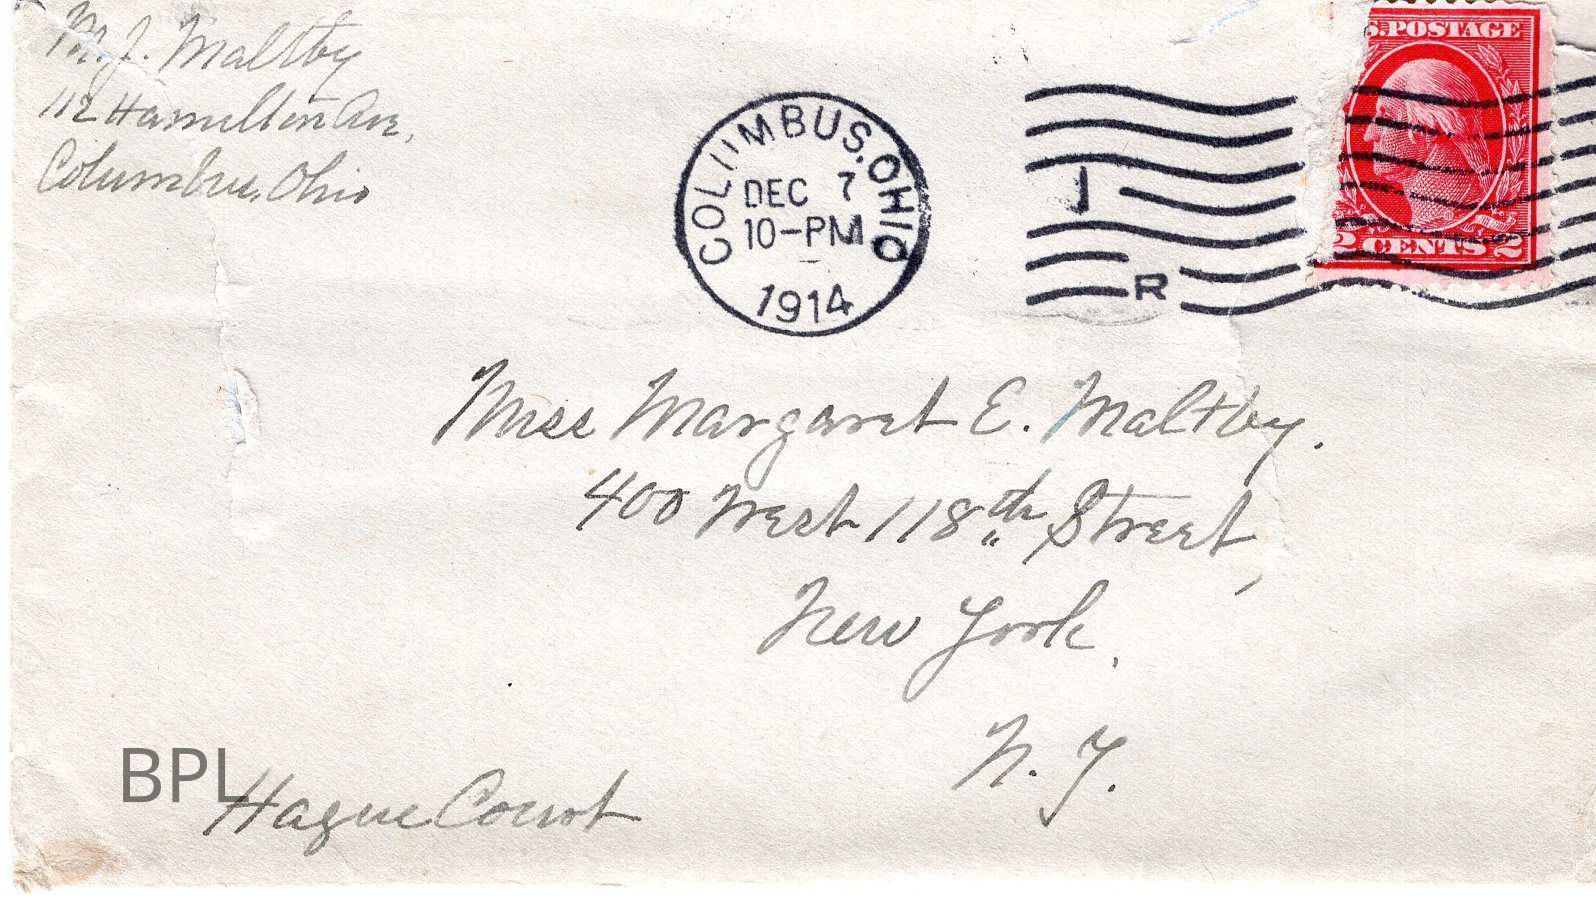 M. J. Maltby
112 Hamilton Ave,
Columbus, Ohio
COLUMBUS, OHIO
DEC 7
10-PM
1914
R
S. POSTAGE
2 CENTS 2
Miss Margaret E. Maltby.
400 West 118th Street,
New York,
N. Y.
BPL
Hague Court